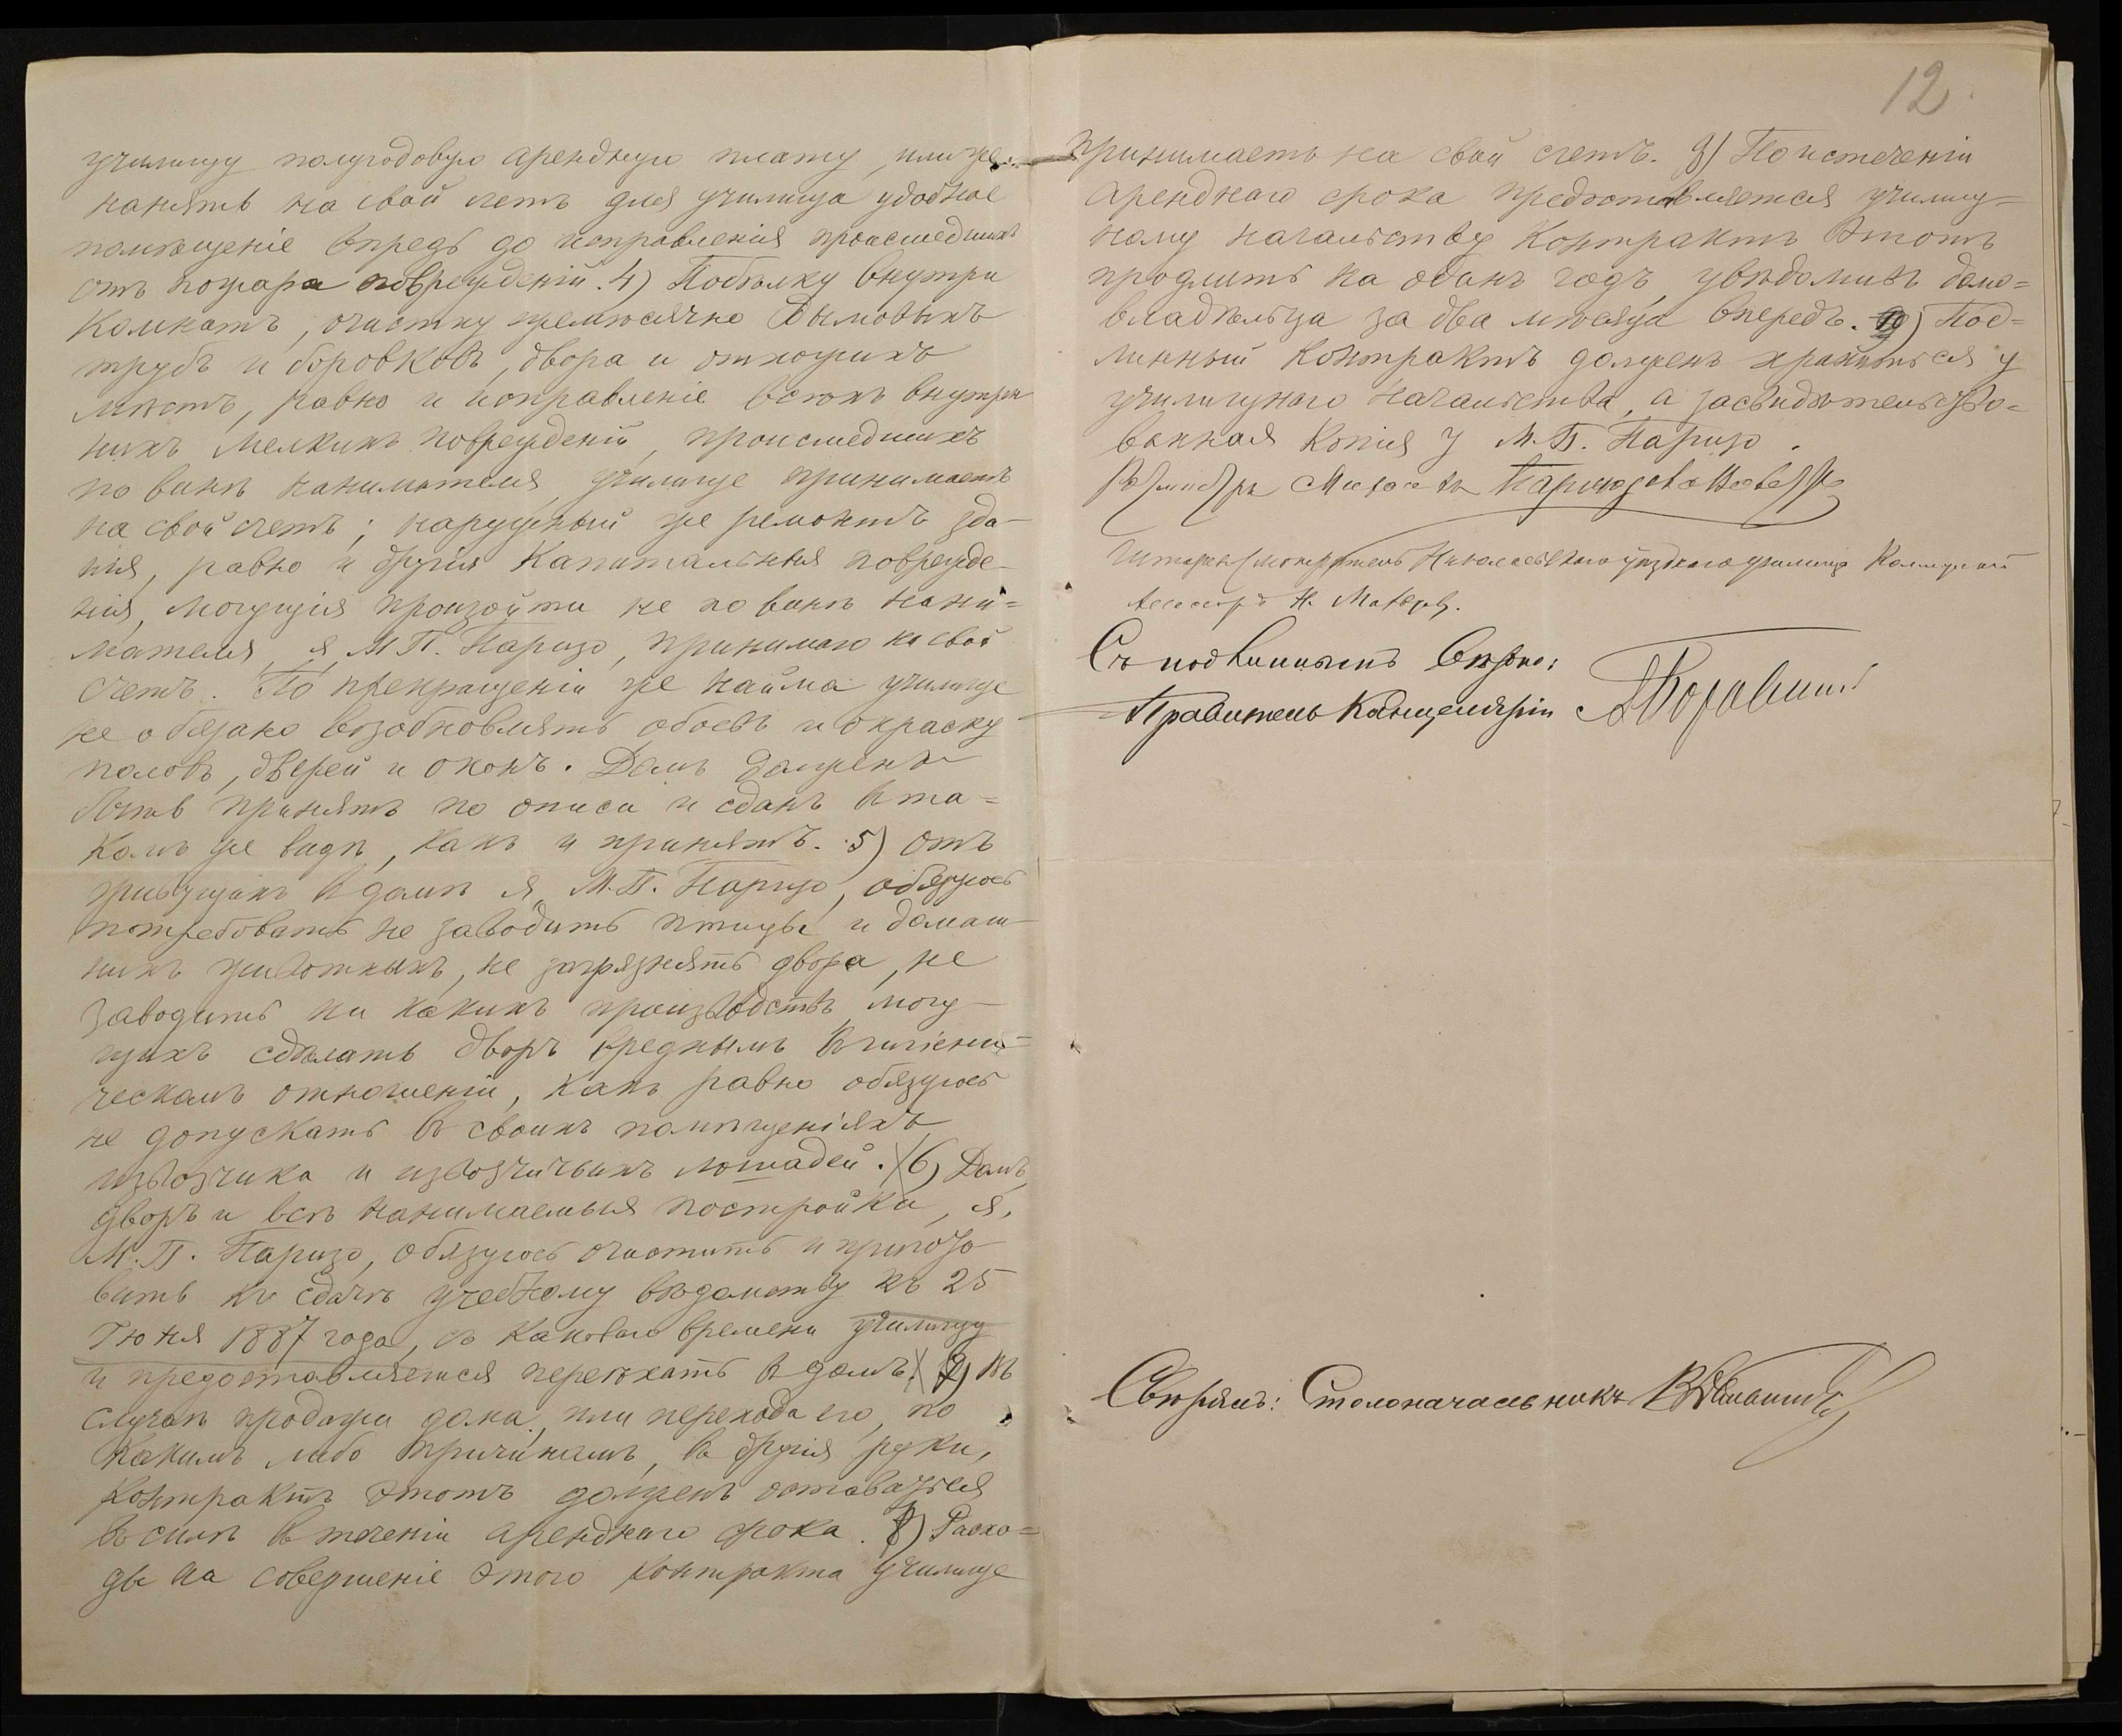 училищу полугодовую арендную плату, или же
нанять на свой счетъ для училища удобное
помѣщеніе впредь до исправленія происшедшихъ
отъ пожара поврежденій. 4) Побѣлку внутри
комнатъ, очистку ежемѣсячно дымовыхъ
трубъ и боровковъ, двора и отхожихъ
мѣстъ, равно и исправленіе всѣхъ внутрен
нихъ мелкихъ поврежденій, происшедшихъ
по винѣ нанимателя, училище принимаетъ
на свой счетъ; наружный же ремонтъ зда-
нія, равно и другія капитальныя поврежде-
нія, могущія произойти не по винѣ нани=
мателя, я, М. П. Паризо, принимаю на свой
счетъ. По прекращеніи же найма училище
не обязано возобновлять обоевъ и окраску
половъ, дверей и оконъ. Домъ долженъ
быть принятъ по описи и сданъ въ та=
комъ же видѣ, какъ и принятъ. 5) Отъ
живущихъ въ домѣ я, М. П. Паризо, обязуюсь
потребовать не заводить птицы и домаш-
нихъ животныхъ, не загрязнять двора, не
заводить ни какихъ производствъ, могу-
щихъ сдѣлать дворъ вреднымъ въ гигіени-
ческомъ отношеніи, какъ равно обязуюсь
не допускать въ своихъ помѣщеніяхъ
извозчика и извозчичьихъ лошадей. 6) Домъ,
дворъ и всѣ нанимаемыя постройки, я,
М. П. Паризо, обязуюсь очистить и пригото
вить къ сдачѣ учебному вѣдомству къ 25
Іюня 1887 года, съ каковаго времени училищу
и предоставляется переѣхать въ домъ. 7) Въ
случаѣ продажи дома, или перехода его, по
какимъ либо причинамъ, въ другія руки,
контрактъ этотъ долженъ оставаться
въ силѣ въ теченіи аренднаго срока. 8) Расхо=
ды на совершеніе этого контракта училище
12
принимаетъ на свой счетъ. 9) По истеченіи
аренднаго срока предоставляется училищ=
ному начальству контрактъ этотъ
продлить на одинъ годъ, увѣдомивъ домо=
владѣльца за два мѣсяца впередъ. 10) Под=
линный контрактъ долженъ храниться у
училищнаго начальства, а засвидѣтельство=
ванная копія у М. П. Паризо.
Штатный смотритель Николаевскаго уѣзднаго училища Коллежскій
Ассесоръ Н.
Съ подлиннымъ вѣрно:
Правитель Канцеляріи
Свѣрялъ: Столоначальникъ